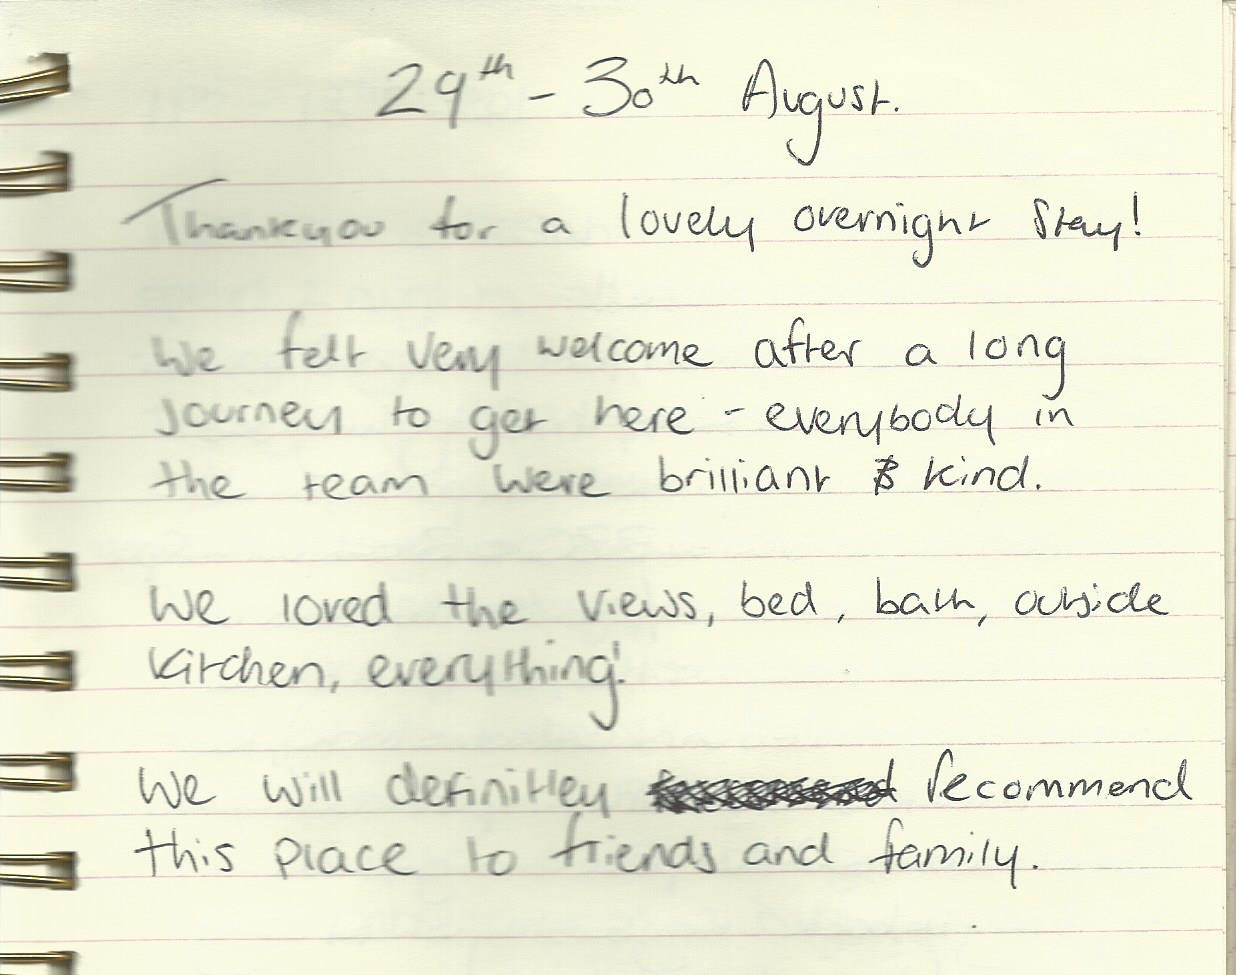 29th - 30th August.
Thankyou for a lovely overnight stay!
We felt very welcome after a long
journey to get here - everybody in
the team were brilliant & kind.
We loved the views, bed, bath, outside
kitchen, everything!
We will definitley recommend
this place to friends and family.